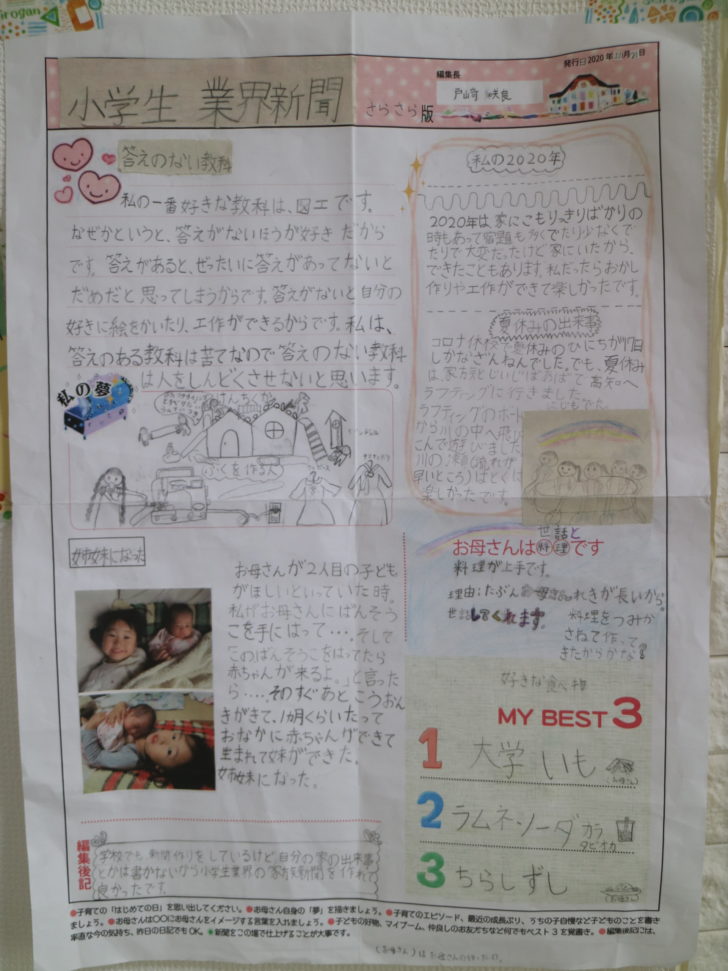 小学生 業界新聞
さらさら版
編集長
発行日 2020年11月21日
答えのない教科
私の一番好きな教科は、図工です。
なぜかというと、答えがないほうが好きだから
です。答えがあると、ぜったいに答えがあってないと
だめだと思ってしまうからです。答えがないと自分の
好きに絵をかいたり、工作ができるからです。私は、
答えのある教科は苦てなので答えのない教科
は人をしんどくさせないと思います。
私の夢
ふくを作る人
姉妹になった
お母さんが2人目の子ども
がほしいといっていた時。
私がお母さんにばんそう
こを手にはって…。そして
「このばんそうこをはってたら
赤ちゃんが来るよ。」と言った
ら…。そのすぐあと、こうおん
きがきて、1ヵ月くらいたって
おなかに赤ちゃんができて
生まれて妹ができた。
姉妹になった。
編集後記
学校でも、新聞作りをしているけど、自分の家の出来事
とかは書かないから小学生業界の家族新聞を作れて
良かったです。
私の2020年
2020年は家にこもりっきりばかりの
時もあって宿題も多くでたり少なくで
たりで大変だったけど家にいたから、
できたこともあります。私だったらおかし
作りや工作ができて楽しかったです。
夏休みの出来事
コロナ休校で夏休みのひにちが17日
しかなくざんねんでした。でも、夏休み
は、家族とじいじばあばで高知へ
ラフティングに行きました。
ラフティングのボート
から川の中へ飛び
こんで遊びました
川の
早いところ)はとくに
楽しかったです。
世話と
お母さんは料理です
料理が上手です。
理由:たぶん れきが長いから。
世話してくれます。
料理をつみか
さねて作って
きたからかな!
好きな食べ物
MY BEST 3
1 大学いも
2 ラムネソーダ
3 ちらしずし
●子育ての「はじめての日」を思い出してください。●お母さん自身の「夢」を描きましょう。●子育てのエピソード、最近の成長ぶり、うちの子自慢など子どものことを書き
ましょう。●お母さんは〇〇にお母さんをイメージする言葉を入れましょう。●子どもの好物、マイブーム、仲良しのお友だちなど何でもベスト3を覚書き。●編集後記には、
率直な今の気持ち、昨日の日記でもOK。●新聞をこの場で仕上げることが大事です。